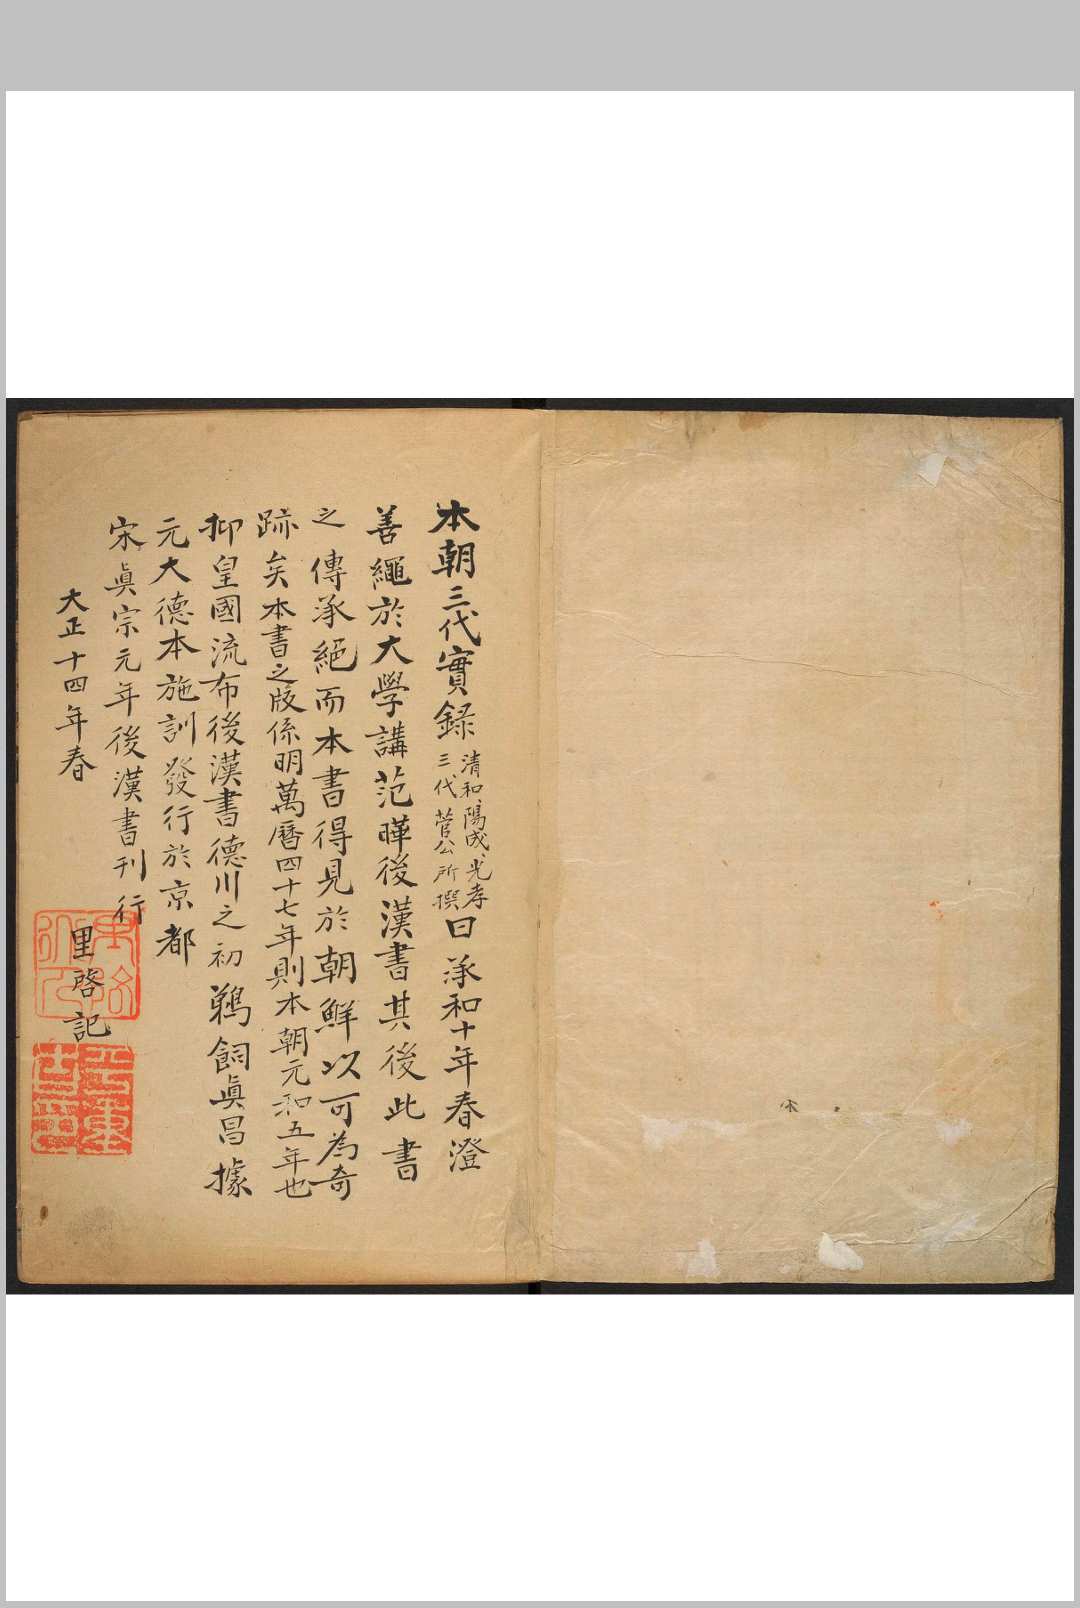 本朝三代實錄
清和、陽成、光孝
三代菅公所撰
曰承和十年春澄
善繩於大學講范曄後漢書其後此書
之傳承絕而本書得見於朝鮮以可為奇
跡矣本書之版係明萬曆四十七年則本朝元和五年也
抑皇國流布後漢書德川之初鵜飼眞昌據
元大德本施訓發行於京都
宋眞宗元年後漢書刊行
大正十四年春
里啓記